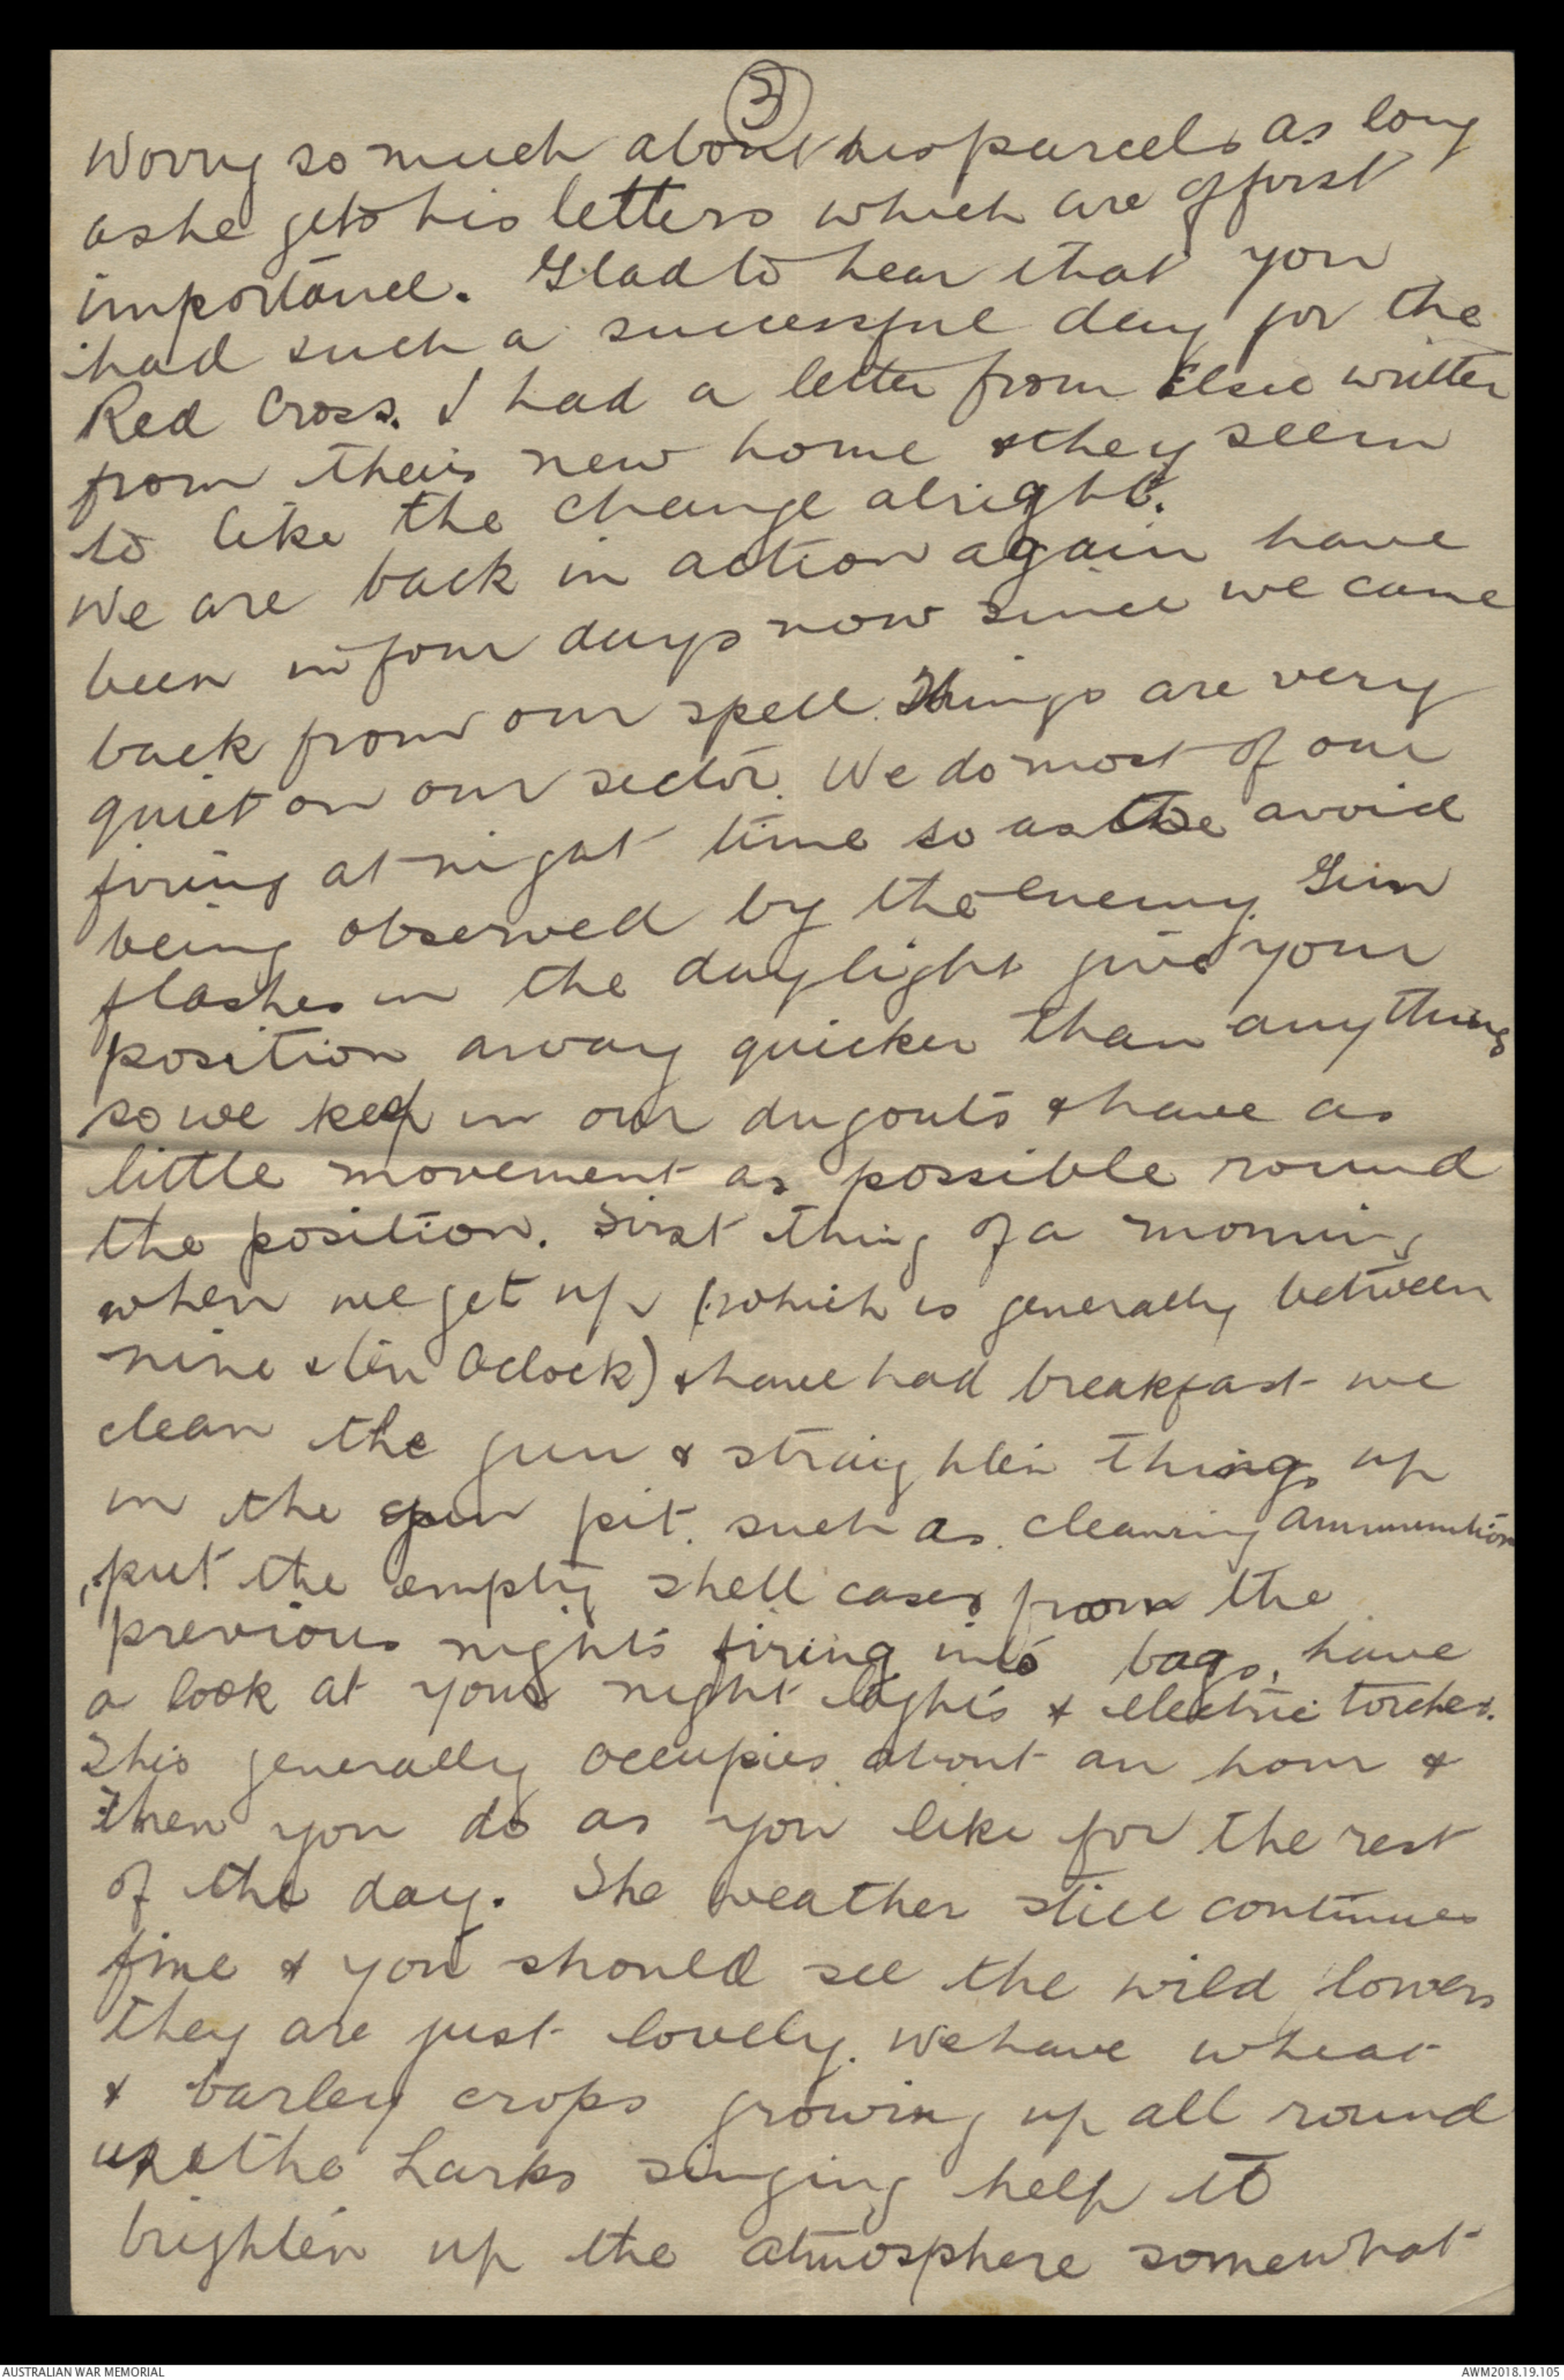 3
Worry so much about his parcels as long
as he gets his letters which are of first
importance. Glad to hear that you
had such a successful day for the
Red Cross. I had a letter from Elsie written
from their new home & they seem
to like the change alright.
We are back in action again have
been in four days now since we came
back from our spell. Things are very
quiet on our sector. We do most of our
firing at night time so as to avoid
being observed by the enemy. Gun
flashes in the daylight give your
position away quicker than anything
so we keep in our dugouts & have as
little movement as possible round
the position. First thing of a morning
when we get up (which is generally between
nine & ten Oclock) & have had breakfast we
clean the gun & straighten things up
in the gun pit. such as cleaning ammunition
, put the empty shell cases from the
previous nights firing into bags, have
a look at your night lights & electric torches.
This generally occupies about an hour &
then you do as you like for the rest
of the day. The weather still continues
fine & you should see the wild lowers
they are just lovely. We have wheat
& barley crops growing up all round
us & the Larks singing help to
brighten up the atmosphere somewhat
AUSTRALIAN WAR MEMORIAL
AWM2018.19.105